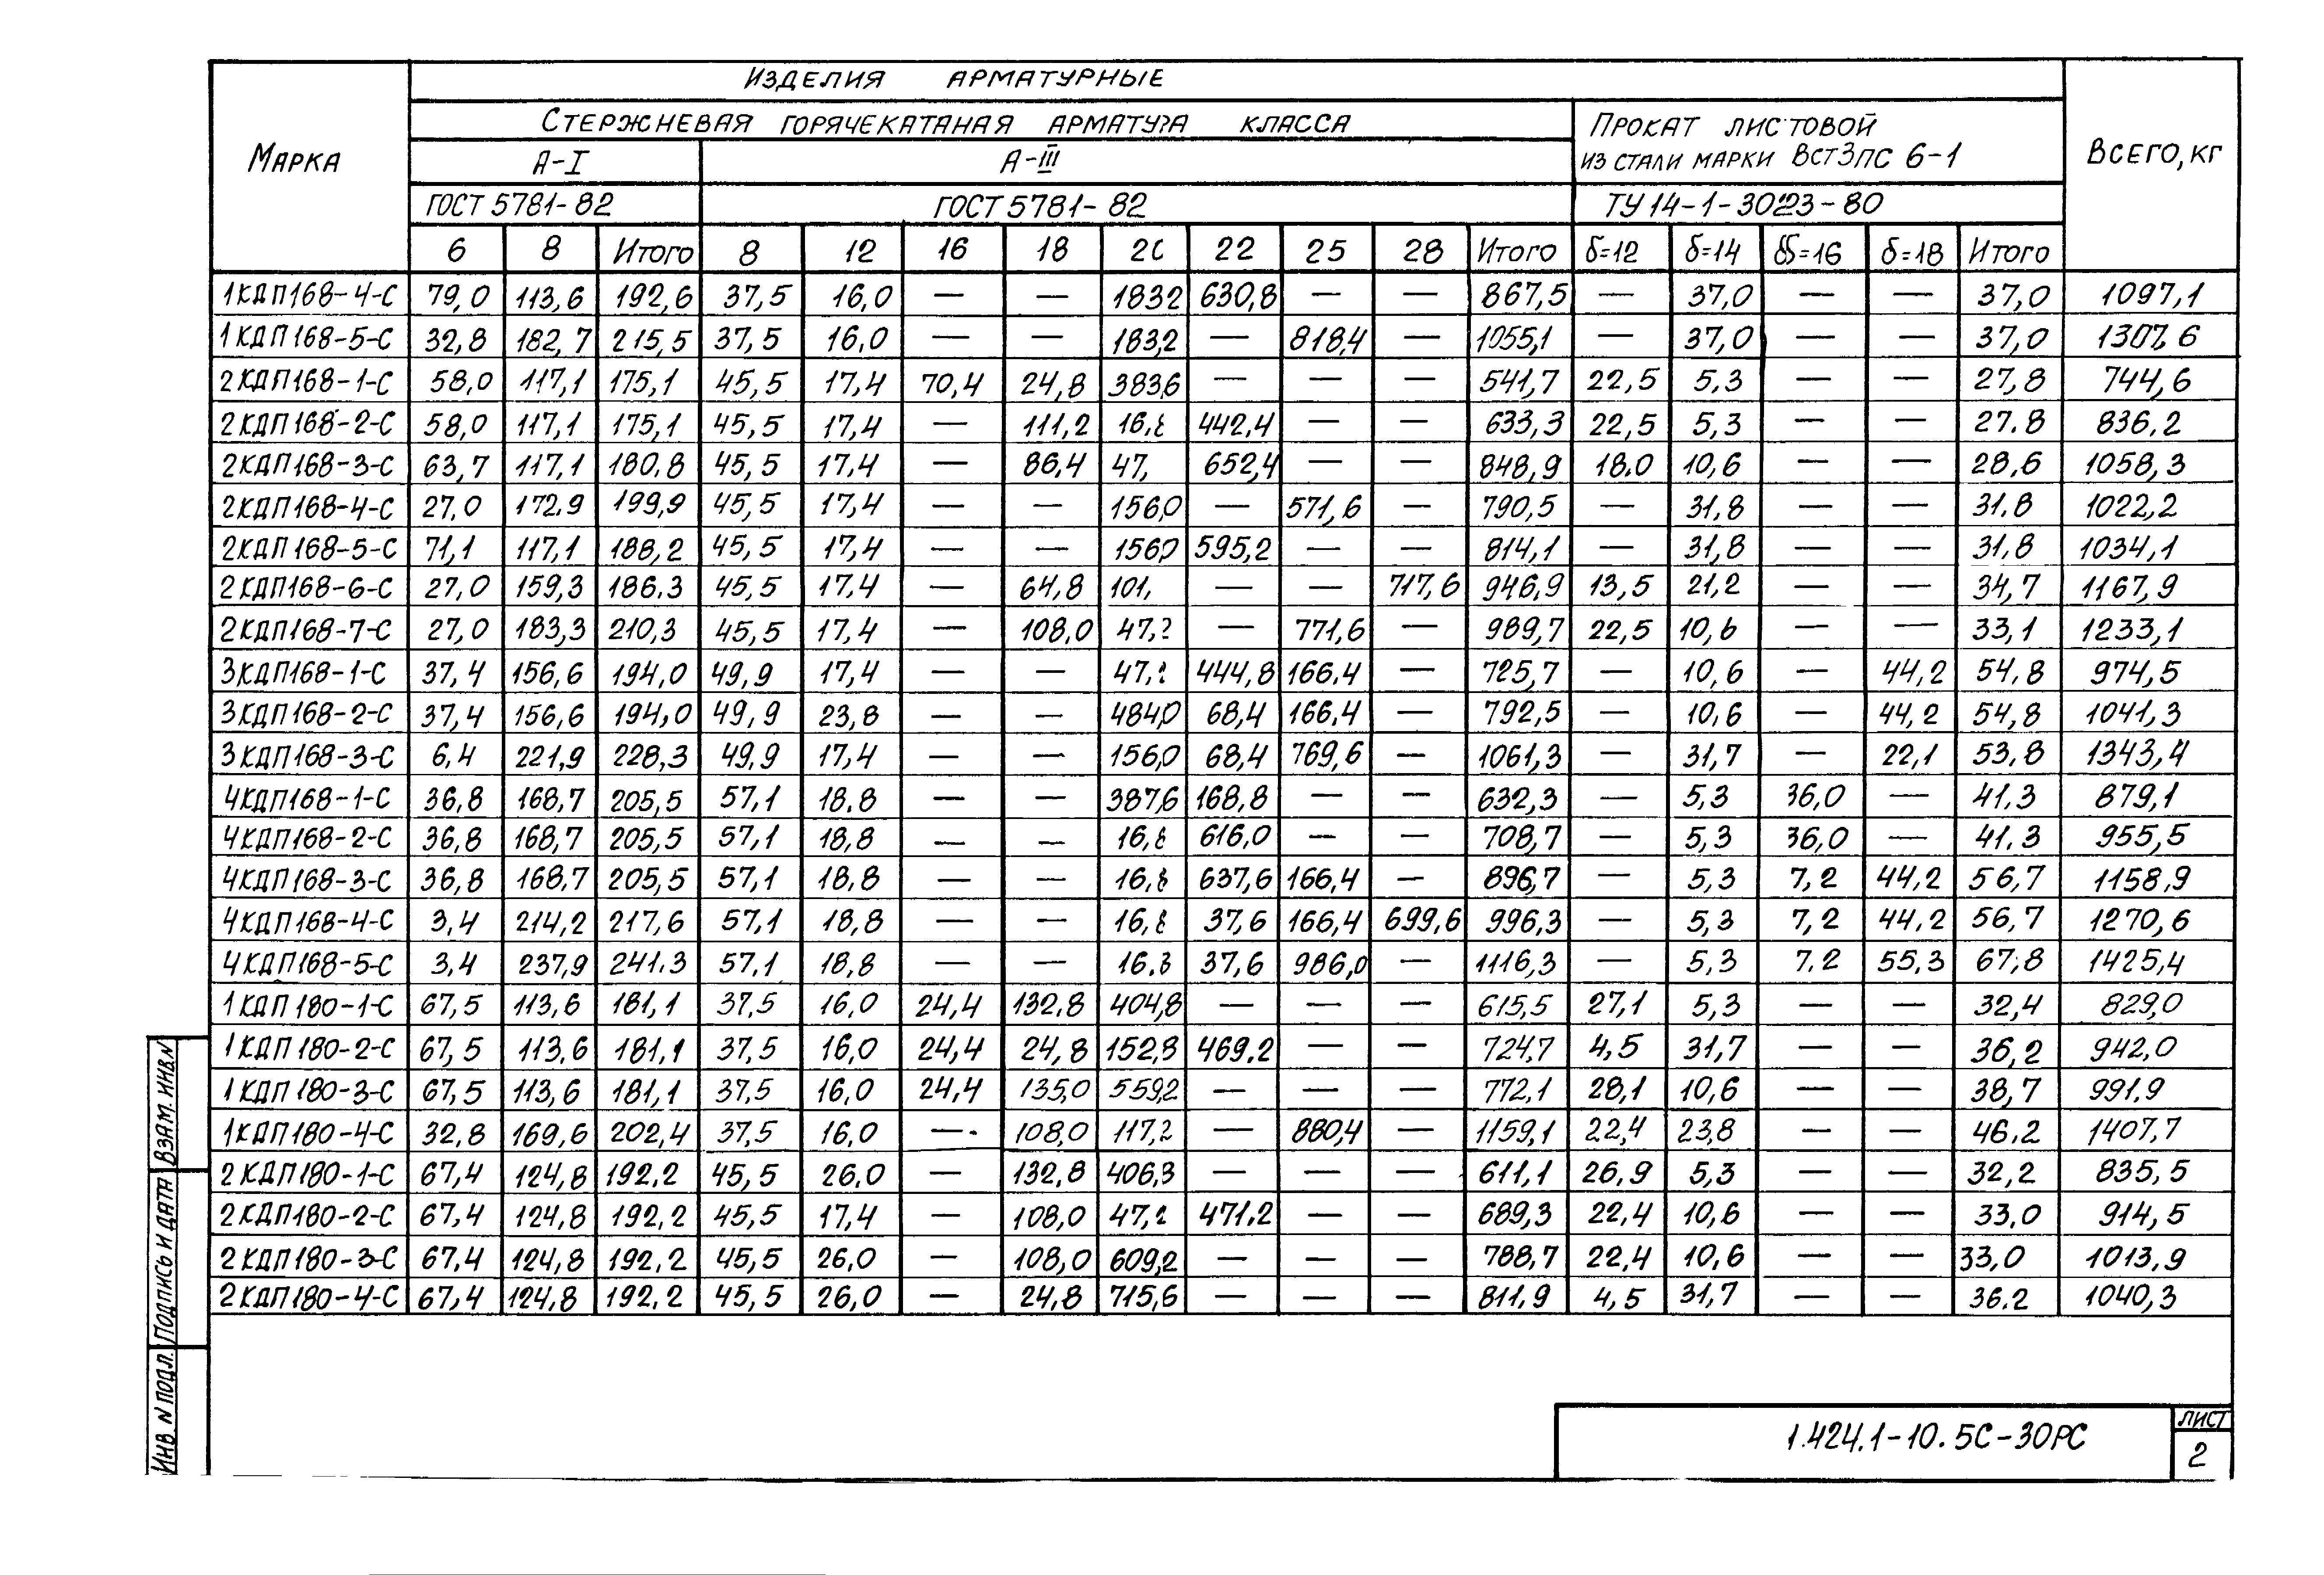 Изделия арматурные
Марка
Стержневая горячекатаная арматура класса
Прокат листовой
из стали марки ВСт3пс 6-1
Всего, кг
А-I
А-III
ГОСТ 5781-82
ГОСТ 5781-82
ТУ 14-1-3023-80
6 8 Итого 8 12 16 18 20 22 25 28 Итого δ=12 δ=14 δ=16 δ=18 Итого
1КДП168-4-С 79,0 113,6 192,6 37,5 16,0 — — 183,2 630,8 — — 867,5 — 37,0 — — 37,0 1097,1
1КДП168-5-С 32,8 182,7 215,5 37,5 16,0 — — 183,2 — 818,4 — 1055,1 — 37,0 — — 37,0 1307,6
2КДП168-1-С 58,0 117,1 175,1 45,5 17,4 70,4 24,8 383,6 — — — 541,7 22,5 5,3 — — 27,8 744,6
2КДП168-2-С 58,0 117,1 175,1 45,5 17,4 — 111,2 16,8 442,4 — — 633,3 22,5 5,3 — — 27.8 836,2
2КДП168-3-С 63,7 117,1 180,8 45,5 17,4 — 86,4 47, 652,4 — — 848,9 18.0 10,6 — — 28,6 1058,3
2КДП168-4-С 27,0 172,9 199,9 45,5 17,4 — — 156,0 — 571,6 — 790,5 — 31,8 — — 31.8 1022,2
2КДП168-5-С 71,1 117,1 188,2 45,5 17,4 — — 156,0 595,2 — — 814,1 — 31,8 — — 31,8 1034,1
2КДП168-6-С 27,0 159,3 186.3 45,5 17,4 — 64,8 101, — — 717,6 946,9 13,5 21,2 — — 34,7 1167,9
2КДП168-7-С 27,0 183,3 210,3 45,5 17,4 — 108,0 47,2 — 771,6 — 989,7 22,5 10,6 — — 33,1 1233,1
3КДП168-1-С 37,4 156,6 194,0 49,9 17,4 — — 47,2 444,8 166.4 — 725,7 — 10,6 — 44,2 54,8 974,5
3КДП168-2-С 37,4 156,6 194,0 49,9 23,8 — — 484,0 68,4 166,4 — 792,5 — 10,6 — 44,2 54,8 1041,3
3КДП168-3-С 6,4 221,9 228,3 49,9 17,4 — — 156,0 68,4 769,6 — 1061,3 — 31,7 — 22,1 53,8 1343,4
4КДП168-1-С 36,8 168,7 205,5 57,1 18.8 — — 387,6 168,8 — — 632,3 — 5,3 36,0 — 41.3 879,1
4КДП168-2-С 36,8 168,7 205,5 57,1 18,8 — — 16,8 616,0 — — 708,7 — 5,3 36,0 — 41.3 955,5
4КДП168-3-С 36,8 168,7 205,5 57,1 18,8 — — 16,8 637,6 166,4 — 896,7 — 5,3 7,2 44,2 56,7 1158,9
4КДП168-4-С 3,4 214,2 217,6 57,1 18,8 — — 16,8 37,6 166,4 699,6 996,3 — 5,3 7,2 44,2 56,7 1270,6
4КДП168-5-С 3,4 237,9 241.3 57,1 18,8 — — 16.8 37,6 986,0 — 1116,3 — 5,3 7.2 55,3 67,8 1425,4
1КДП180-1-С 67,5 113,6 181,1 37,5 16,0 24,4 132.8 404,8 — — — 615,5 27,1 5,3 — — 32,4 829,0
1КДП180-2-С 67,5 113,6 181,1 37,5 16,0 24,4 24,8 152,8 469.2 — — 724,7 4,5 31,7 — — 36,2 942,0
1КДП180-3-С 67,5 113,6 181,1 37,5 16,0 24,4 135,0 559,2 — — — 772,1 28,1 10,6 — — 38,7 991.9
1КДП180-4-С 32,8 169,6 202,4 37,5 16,0 — 108,0 117,2 — 880,4 — 1159,1 22,4 23,8 — — 46.2 1407,7
2КДП180-1-С 67,4 124,8 192,2 45,5 26,0 — 132,8 406,8 — — — 611,1 26,9 5,3 — — 32,2 835,5
2КДП180-2-С 67,4 124,8 192,2 45,5 17,4 — 108,0 47,2 471.2 — — 689,3 22,4 10,6 — — 33,0 914,5
2КДП180-3-С 67.4 124,8 192,2 45,5 26,0 — 108,0 609,2 — — — 788,7 22,4 10,6 — — 33,0 1013,9
2КДП180-4-С 67,4 124,8 192.2 45,5 26,0 — 24,8 715,6 — — — 811,9 4,5 31,7 — — 36.2 1040,3
Взам. инв.N
Подпись и дата
Инв. N подл.
1.424.1-10.5С-30РС
Лист
2